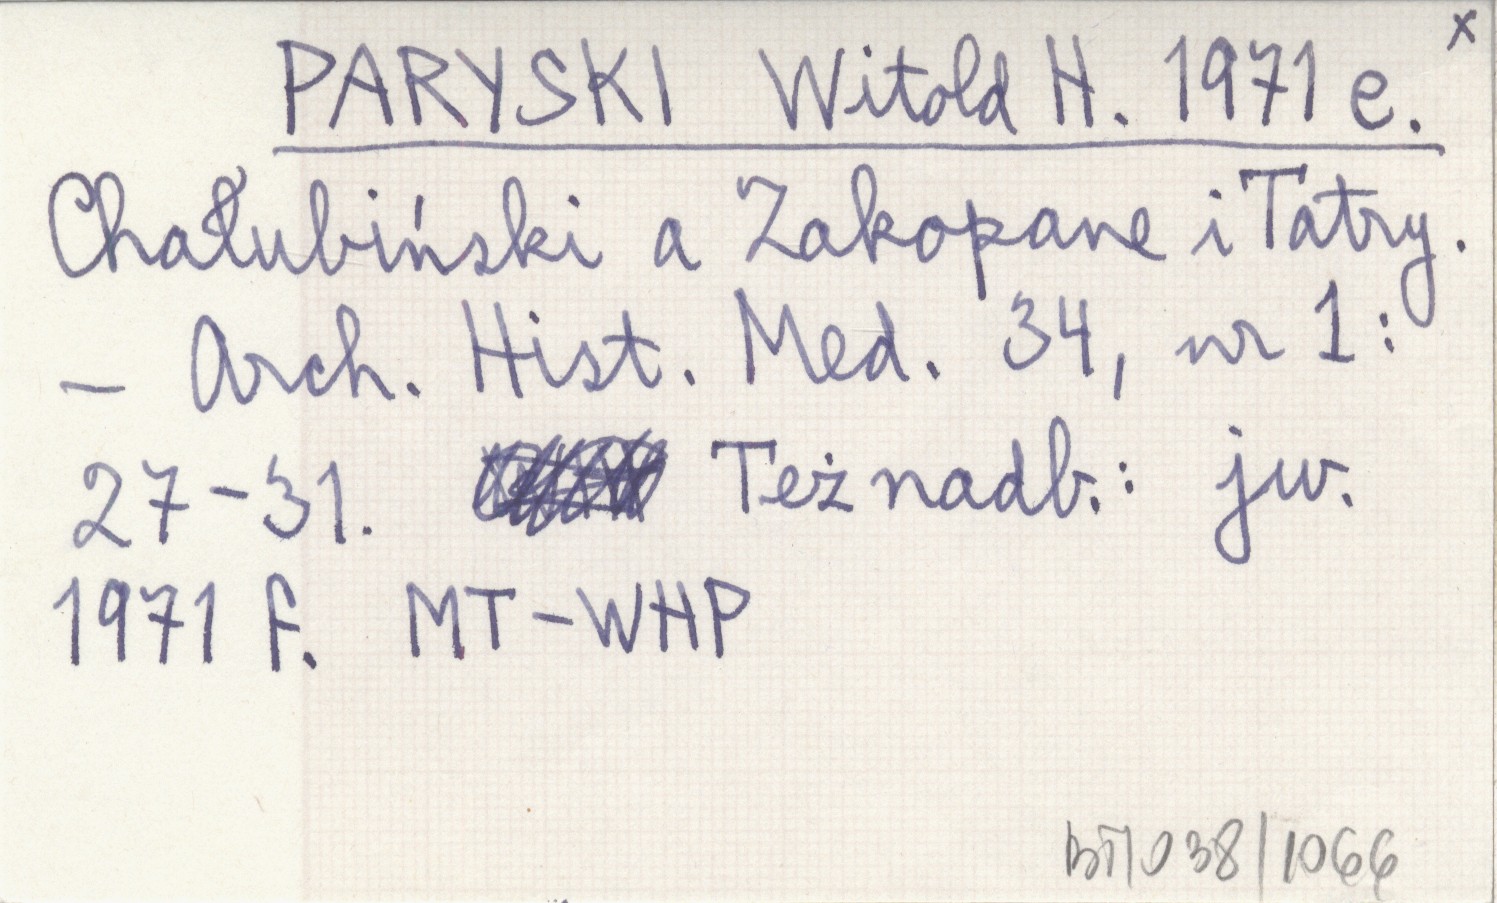 x
PARYSKI Witold H. 1971 e.
Chałubiński a Zakopane i Tatry.
– Arch. Hist. Med. 34, nr 1:
27-31. Też nadb.: jw.
1971 f. MT-WHP
BT/038/1066